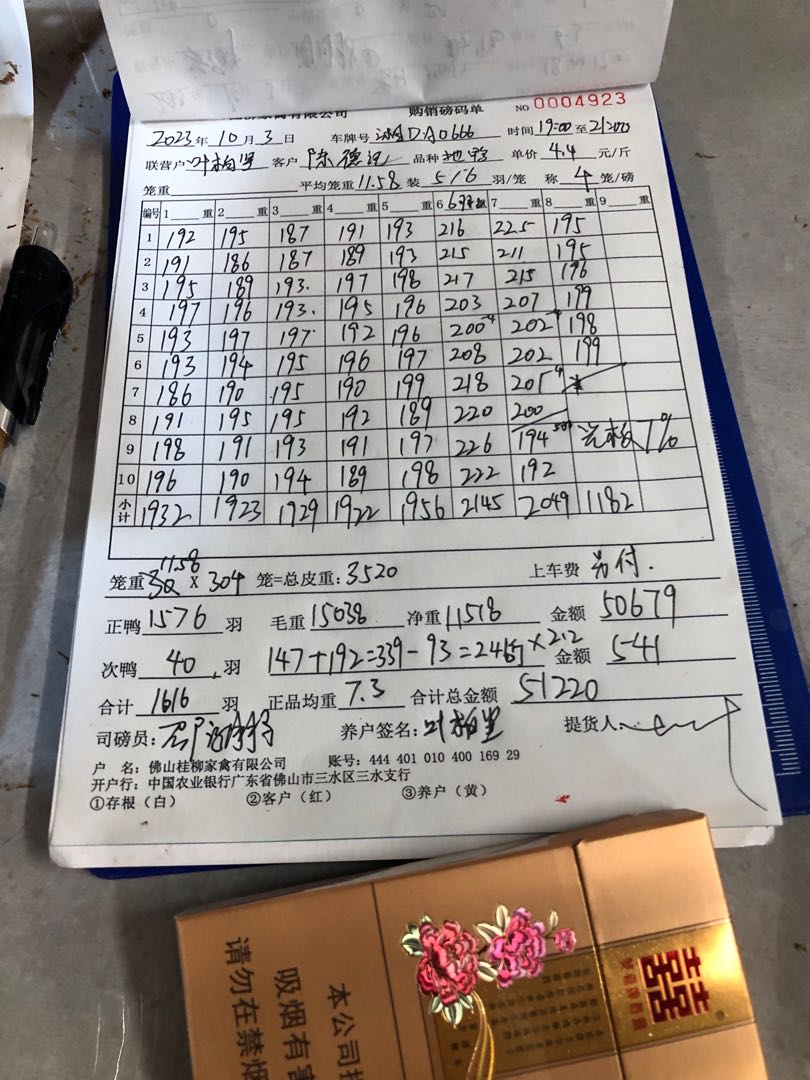 家禽有限公司 购销磅码单 NO 0004923
2023年 10月 3日 车牌号 湘D·A0666 时间 19:00 至 21:00
联营户 叶柏坚 客户 陈德 品种 单价 4.4 元/斤
笼重 平均笼重 11.58 装 5/6 羽/笼 称 4 笼/磅
编号 1 重 2 重 3 重 4 重 5 重 6 重 7 重 8 重 9 重
1 192 195 187 191 193 216 225 195
2 191 186 187 189 193 215 211 195
3 195 189 193. 197 198 217 215 196
4 197 196 193. 195 196 203 207 199
5 193 197 197 192 196 200-4 202-4 198
6 193 194 195 196 197 208 202 199
7 186 190 195 190 199 218 205
8 191 195 195 192 189 220 200
9 198 191 193 191 197 226 194 7%
10 196 190 194 189 198 222 192
小计 1932 1923 1929 1922 1956 2145 2049 1182
笼重 11.58 X 304 笼=总皮重: 3520 上车费 另付.
正鸭 1576 羽 毛重 15038 净重 11518 金额 50679
次鸭 40 羽 147+192=339-93=246斤×2.2 金额 541
合计 1616 羽 正品均重 7.3 合计总金额 51220
司磅员: 养户签名: 叶柏坚 提货人
户 名: 佛山桂柳家禽有限公司 账号: 444 401 010 400 169 29
开户行: 中国农业银行广东省佛山市三水区三水支行
①存根（白） ②客户（红） ③养户（黄）
本公司
吸烟有害
请勿在禁烟
囍